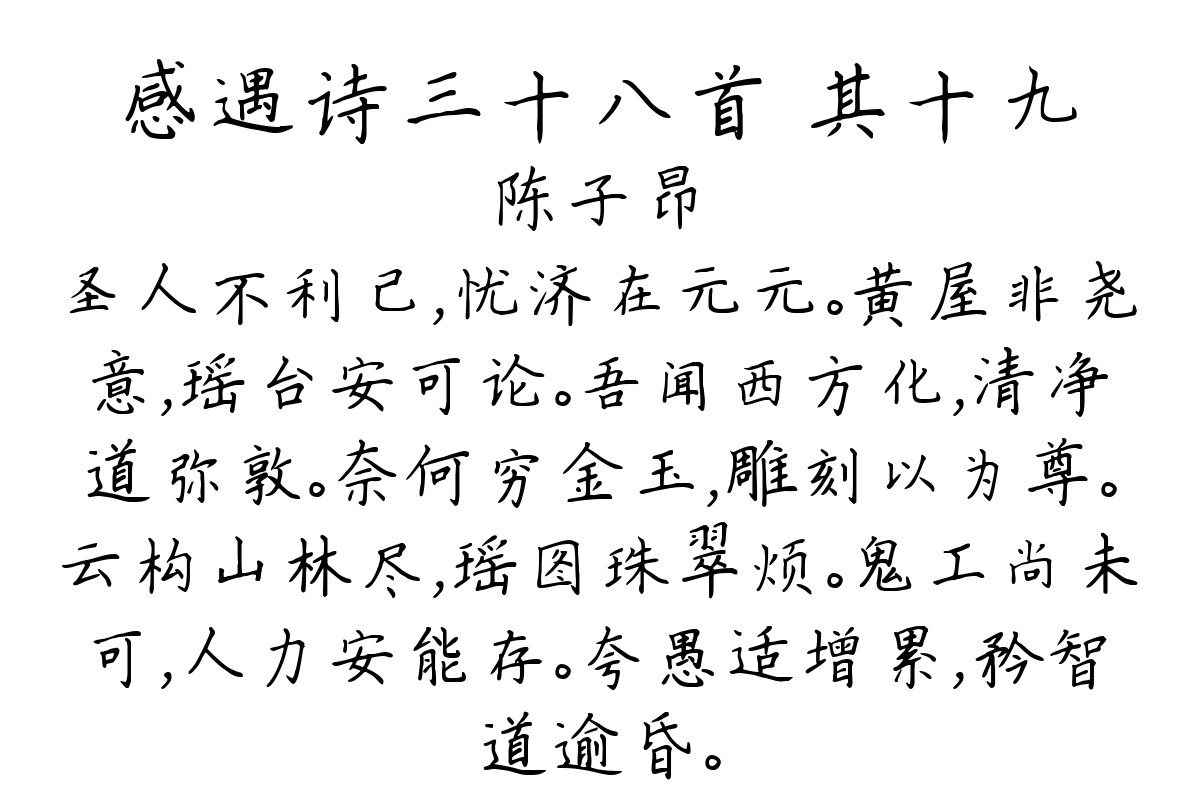 感遇诗三十八首 其十九
陈子昂
圣人不利己,忧济在元元。黄屋非尧
意,瑶台安可论。吾闻西方化,清净
道弥敦。奈何穷金玉,雕刻以为尊。
云构山林尽,瑶图珠翠烦。鬼工尚未
可,人力安能存。夸愚适增累,矜智
道逾昏。